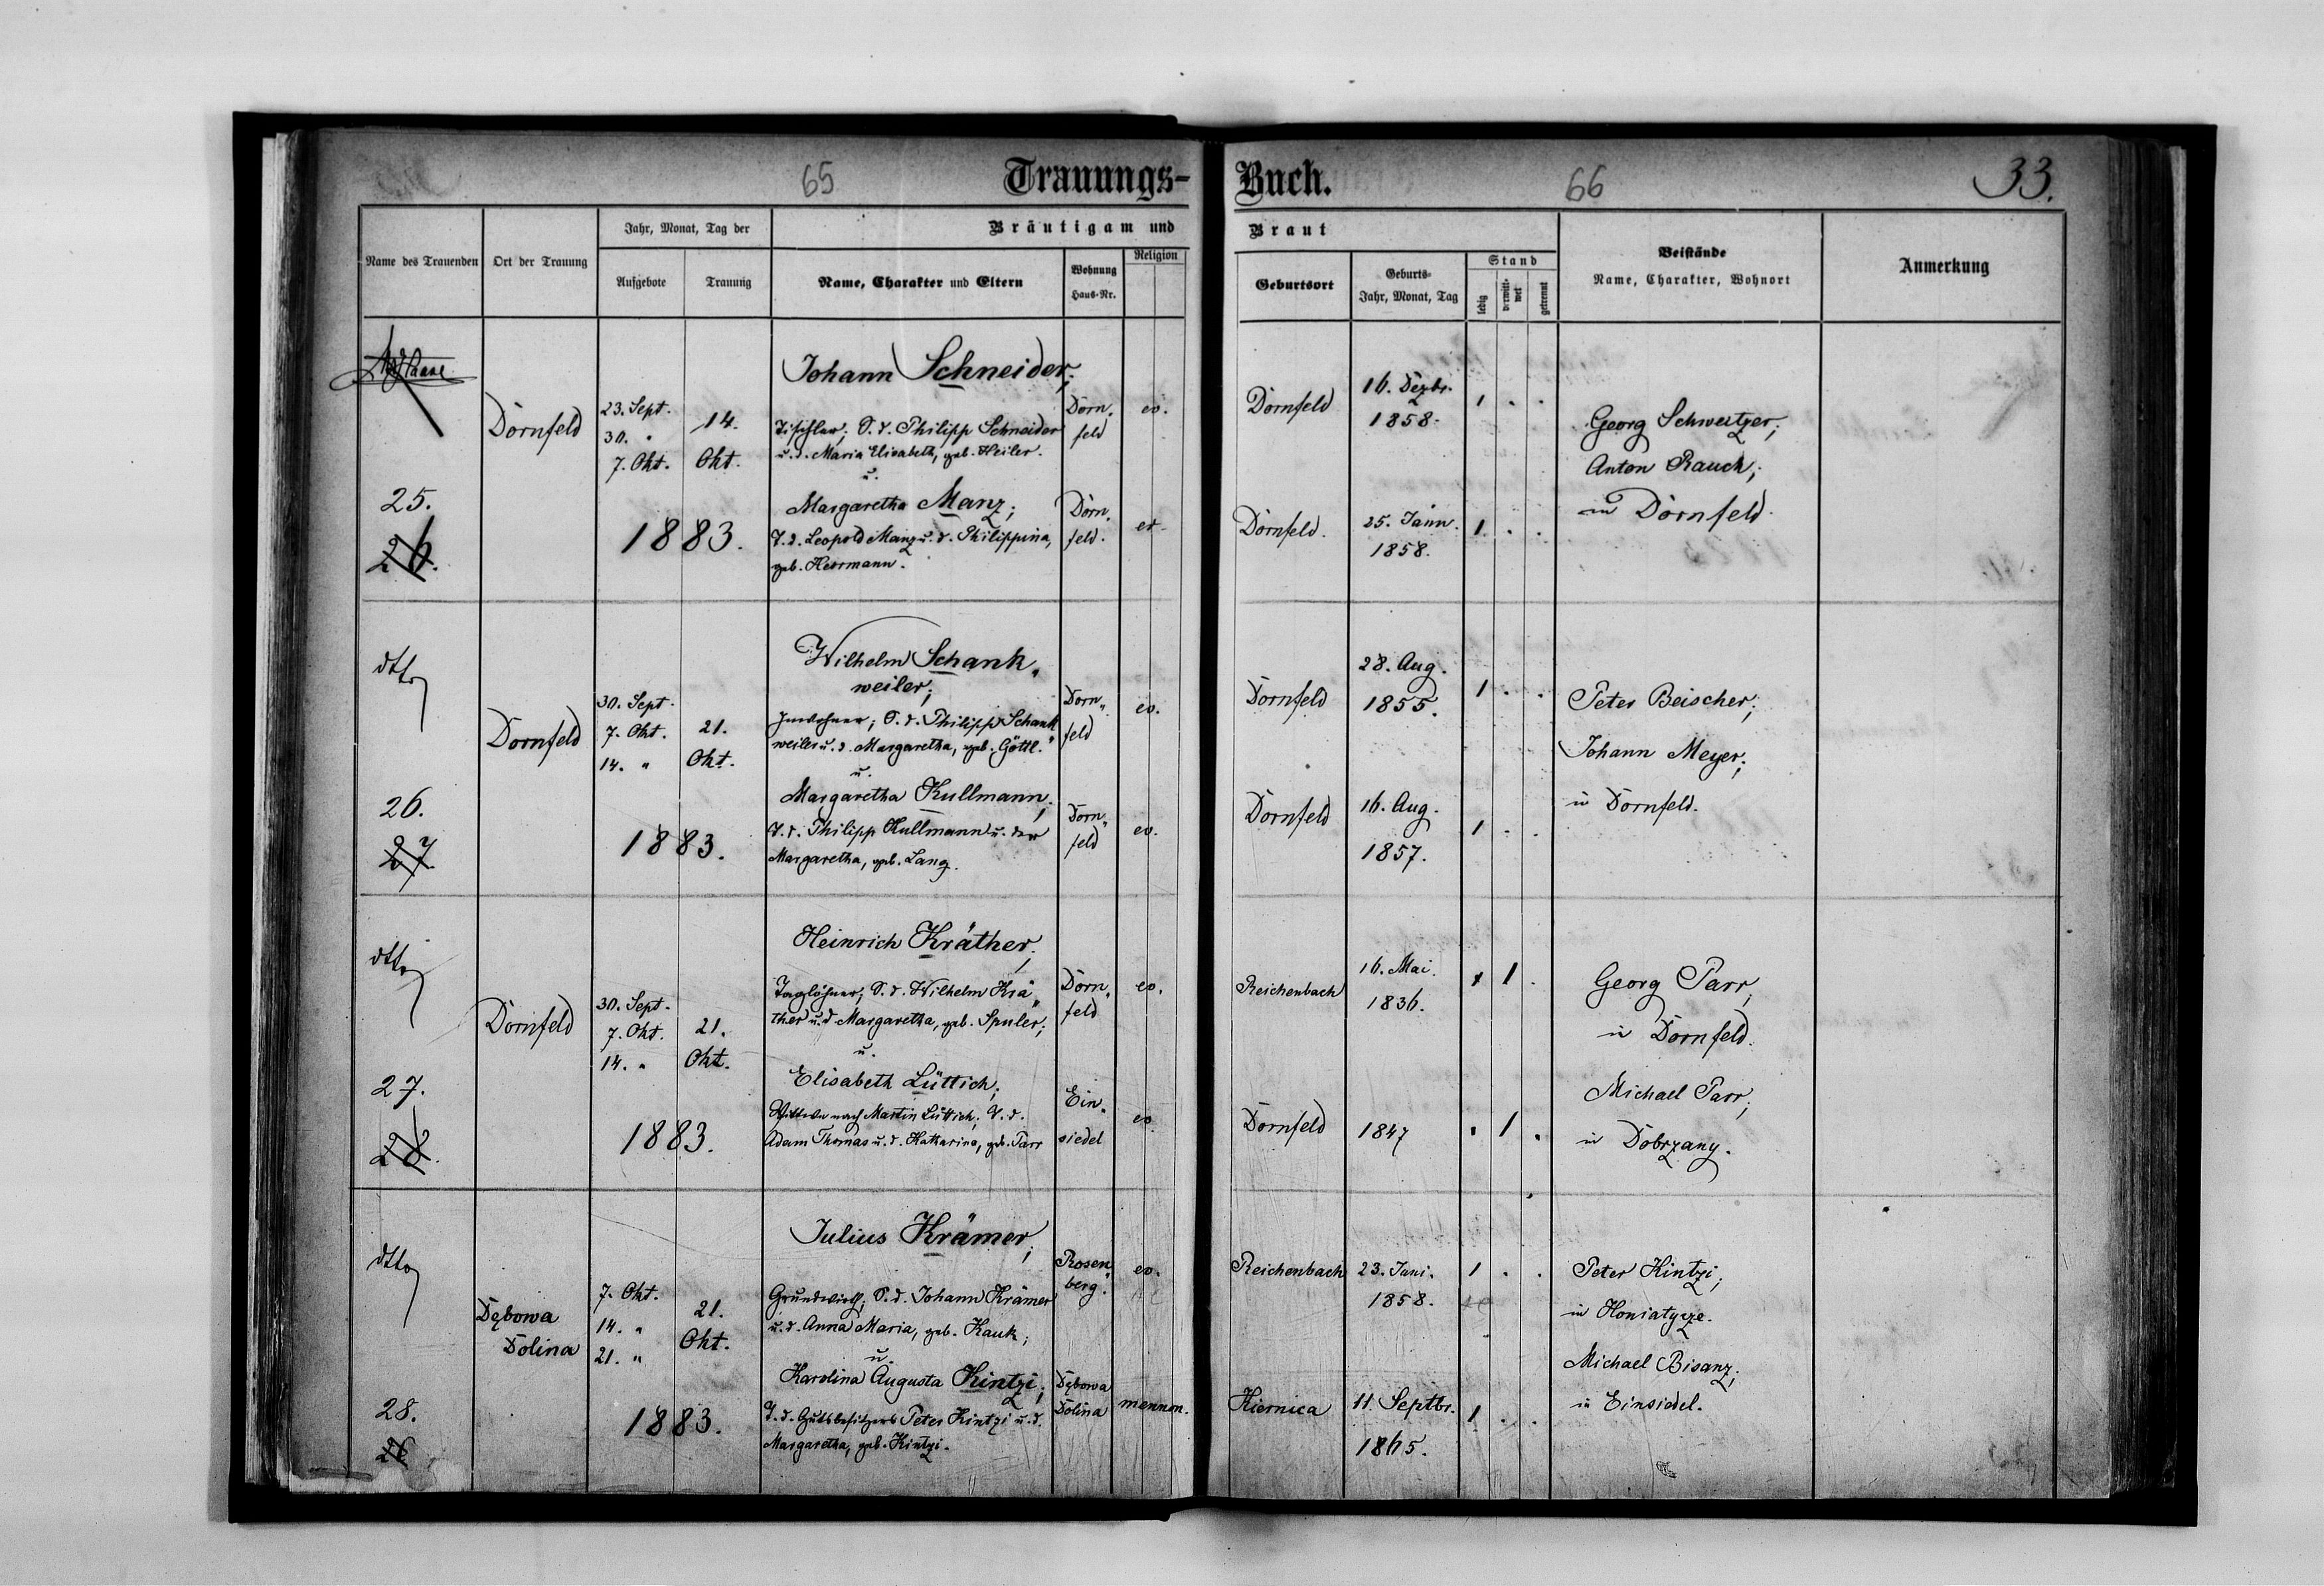 65
Trauungs-
Buch.
66
33.
Name des Trauenden
Ort der Trauung
Jahr, Monat, Tag der
Aufgebote
Trauung
Bräutigam und
Braut
Name, Charakter und Eltern
Wohnung
Haus-Nr.
Religion
Geburtsort
Geburts-
Jahr, Monat, Tag
Stand
ledig
verwitt-
wet
getrennt
Beistände
Name, Charakter, Wohnort
Anmerkung
25.
26.
Dornfeld
23. Sept.
30. "
7. Okt.
14.
Okt.
1883.
Johann Schneider;
Tischler; S. d. Philipp Schneider
u. d. Maria Elisabeth, geb. Heiler.
u.
Margaretha Manz;
T. d. Leopold Manz u. d. Philippina,
geb. Herrmann.
Dorn-
feld
ev.
Dorn-
feld.
ev.
Dornfeld
16. Dezbr.
1858.
1 . .
Dornfeld.
25. Jänn.
1858.
1 . .
Georg Schweitzer;
Anton Rauch;
in Dornfeld.
dtto
26.
27.
Dornfeld
30. Sept.
7. Okt.
14. "
21.
Okt.
1883.
Wilhelm Schank-
weiler;
Inwohner; S. d. Philipp Schank-
weiler u. d. Margaretha, geb. Göttl.
u.
Margaretha Kullmann;
T. d. Philipp Kullmann u. der
Margaretha, geb. Lang.
Dorn-
feld
ev.
Dorn-
feld
ev.
Dornfeld
28. Aug.
1855.
1 . .
Dornfeld
16. Aug.
1857.
1 . .
Peter Beischer;
Johann Meyer;
in Dornfeld.
dtto
27.
28.
Dornfeld
30. Sept.
7. Okt.
14. "
21.
Okt.
1883.
Heinrich Kräther;
Taglöhner; S. d. Wilhelm Krä-
ther u. d. Margaretha, geb. Spuler;
u.
Elisabeth Lüttich;
Wittwe nach Martin Lüttich; T. d.
Adam Thomas u. d. Katharina, geb. Parr
Dorn-
feld
ev.
Ein-
siedel
ev.
Reichenbach
16. Mai.
1836.
1 .
Dornfeld
1847
. 1 .
Georg Parr,
in Dornfeld.
Michael Parr;
in Dobrzany.
dtto
28.
Dębowa
Dolina
7. Okt.
14. "
21. "
21.
Okt.
1883.
Julius Krämer;
Grundwirth; S. d. Johann Krämer
u. d. Anna Maria, geb. Kauk;
u.
Karolina Augusta Kintzi;
T. d. Gutsbesitzers Peter Kintzi u. d.
Margaretha, geb. Kintzi.
Rosen-
berg.
ev.
Dębowa
Dolina
mennon.
Reichenbach
23. Juni.
1858.
1 . .
Kiernica
11 Septbr.
1865.
1 . .
Peter Kintzi;
in Honiatycze.
Michael Bisanz;
in Einsiedel.